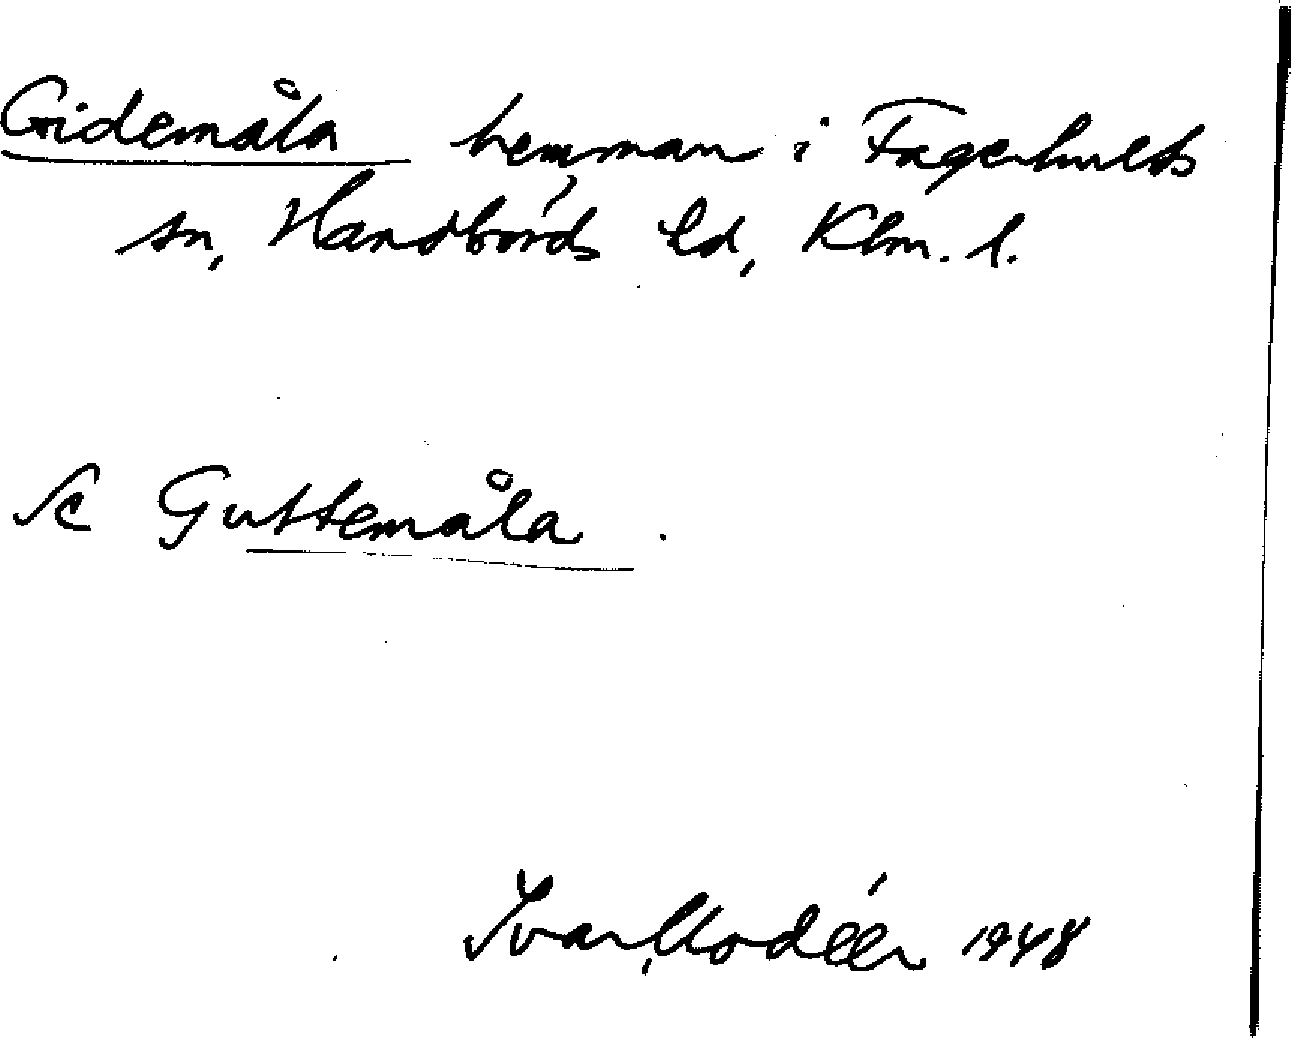 Gidemåla hemman i Fagerhults
sn, Handbörds hd, Klm. l.
Se Guttemåla.
Ivar Modéer 1948